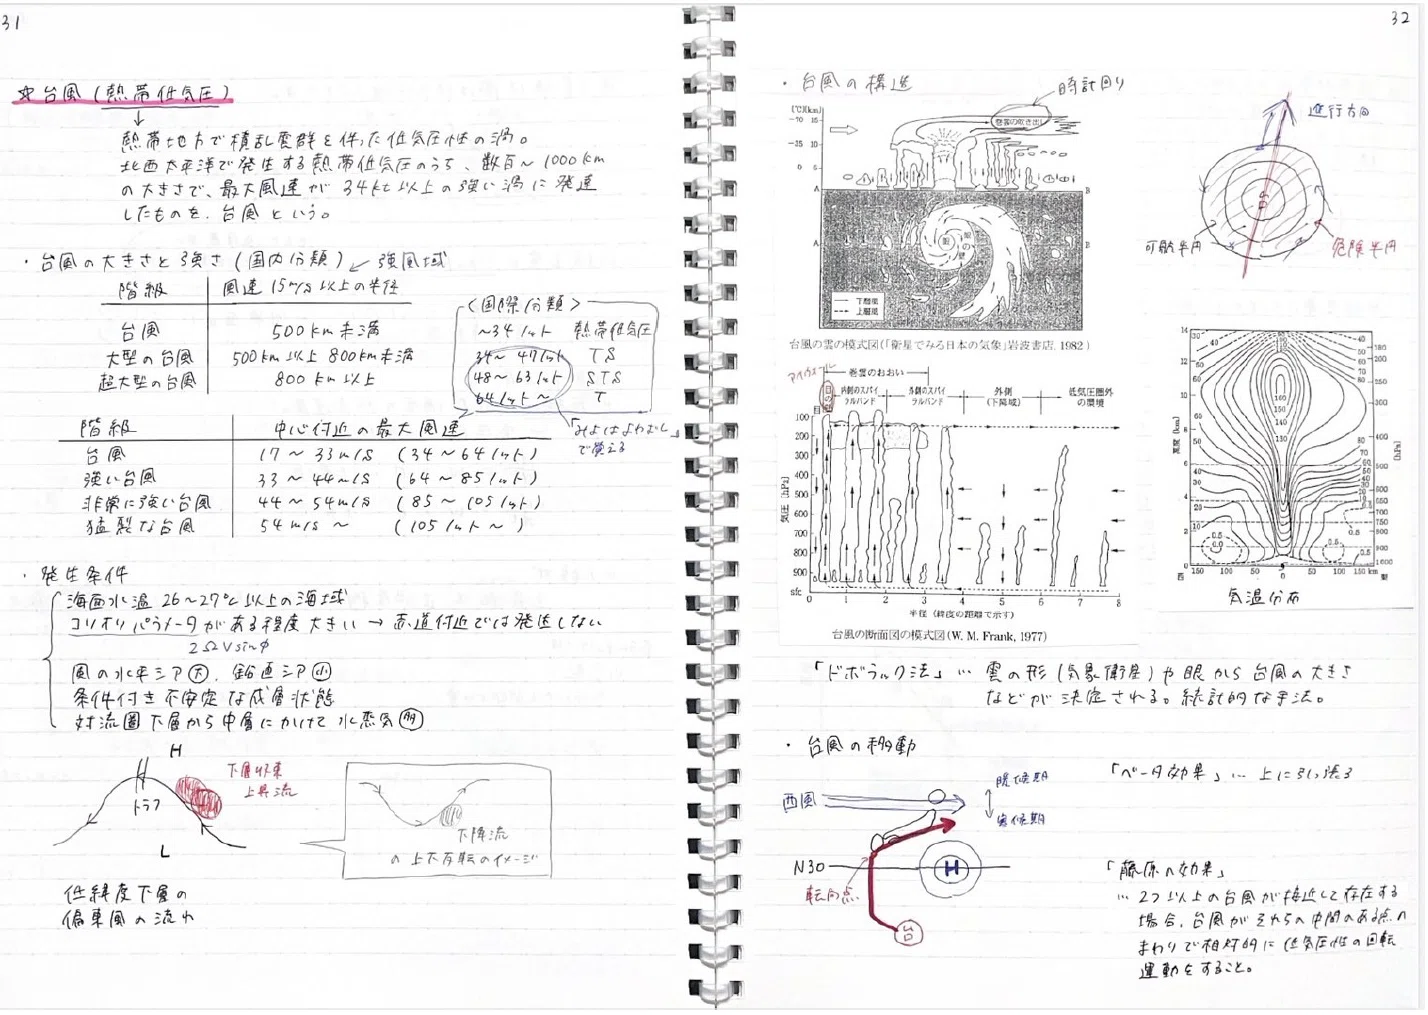 31
☆台風(熱帯低気圧)
↓
熱帯地方で積乱雲群を伴った低気圧性の渦。
北西太平洋で発生する熱帯低気圧のうち、数百〜1000km
の大きさで、最大風速が34kt以上の強い渦に発達
したものを、台風という。
・台風の大きさと強さ(国内分類) ↙強風域
階級 風速15m/s以上の半径
台風 500km未満
大型の台風 500km以上800km未満
超大型の台風 800km以上
<国際分類>
〜34knt 熱帯低気圧
34〜47knt TS
48〜63knt STS
64knt〜 T
みよはよわむし
で覚える
階級 中心付近の最大風速
台風 17〜33m/s (34〜64knt)
強い台風 33〜44m/s (64〜85knt)
非常に強い台風 44〜54m/s (85〜105knt)
猛烈な台風 54m/s〜 (105knt〜)
・発生条件
海面水温26〜27℃以上の海域
コリオリパラメータがある程度大きい→赤道付近では発生しない
2ΩVsinφ
風の水平シア大、鉛直シア小
条件付き不安定な成層状態
対流圏下層から中層にかけて水蒸気多
H
トラフ
下層収束
上昇流
L
下降流
の上下反転のイメージ
低緯度下層の
偏東風の流れ
32
・台風の構造
時計回り
[℃][km]
-70 15
-35 10
0 5
0
巻雲の吹き出し
A B
A 眼 眼の壁 B
下層風
上層風
台風の雲の模式図(「衛星でみる日本の気象」岩波書店, 1982)
進行方向
台
可航半円
危険半円
アイウォール
巻雲のおおい
目
目の壁
内側のスパイラルバンド
外側のスパイラルバンド
外側(下降域)
低気圧圏外の環境
気圧 [hPa]
100
200
300
400
500
600
700
800
900
sfc
0 1 2 3 4 5 6 7 8
半径 (緯度の距離で示す)
台風の断面図の模式図(W. M. Frank, 1977)
高度 [km]
14
12
10
8
6
4
2
0
[hPa]
西 150 100 50 0 50 100 150 km 東
気温分布
「ドボラック法」… 雲の形(気象衛星)や眼から台風の大きさ
などが決定される。統計的な手法。
・台風の移動
西風
暖候期
寒候期
N30
H
転向点
台
「ベータ効果」… 上に引っ張る
「藤原の効果」
… 2つ以上の台風が接近して存在する
場合、台風がそれらの中間のある点の
まわりで相対的に低気圧性の回転
運動をすること。